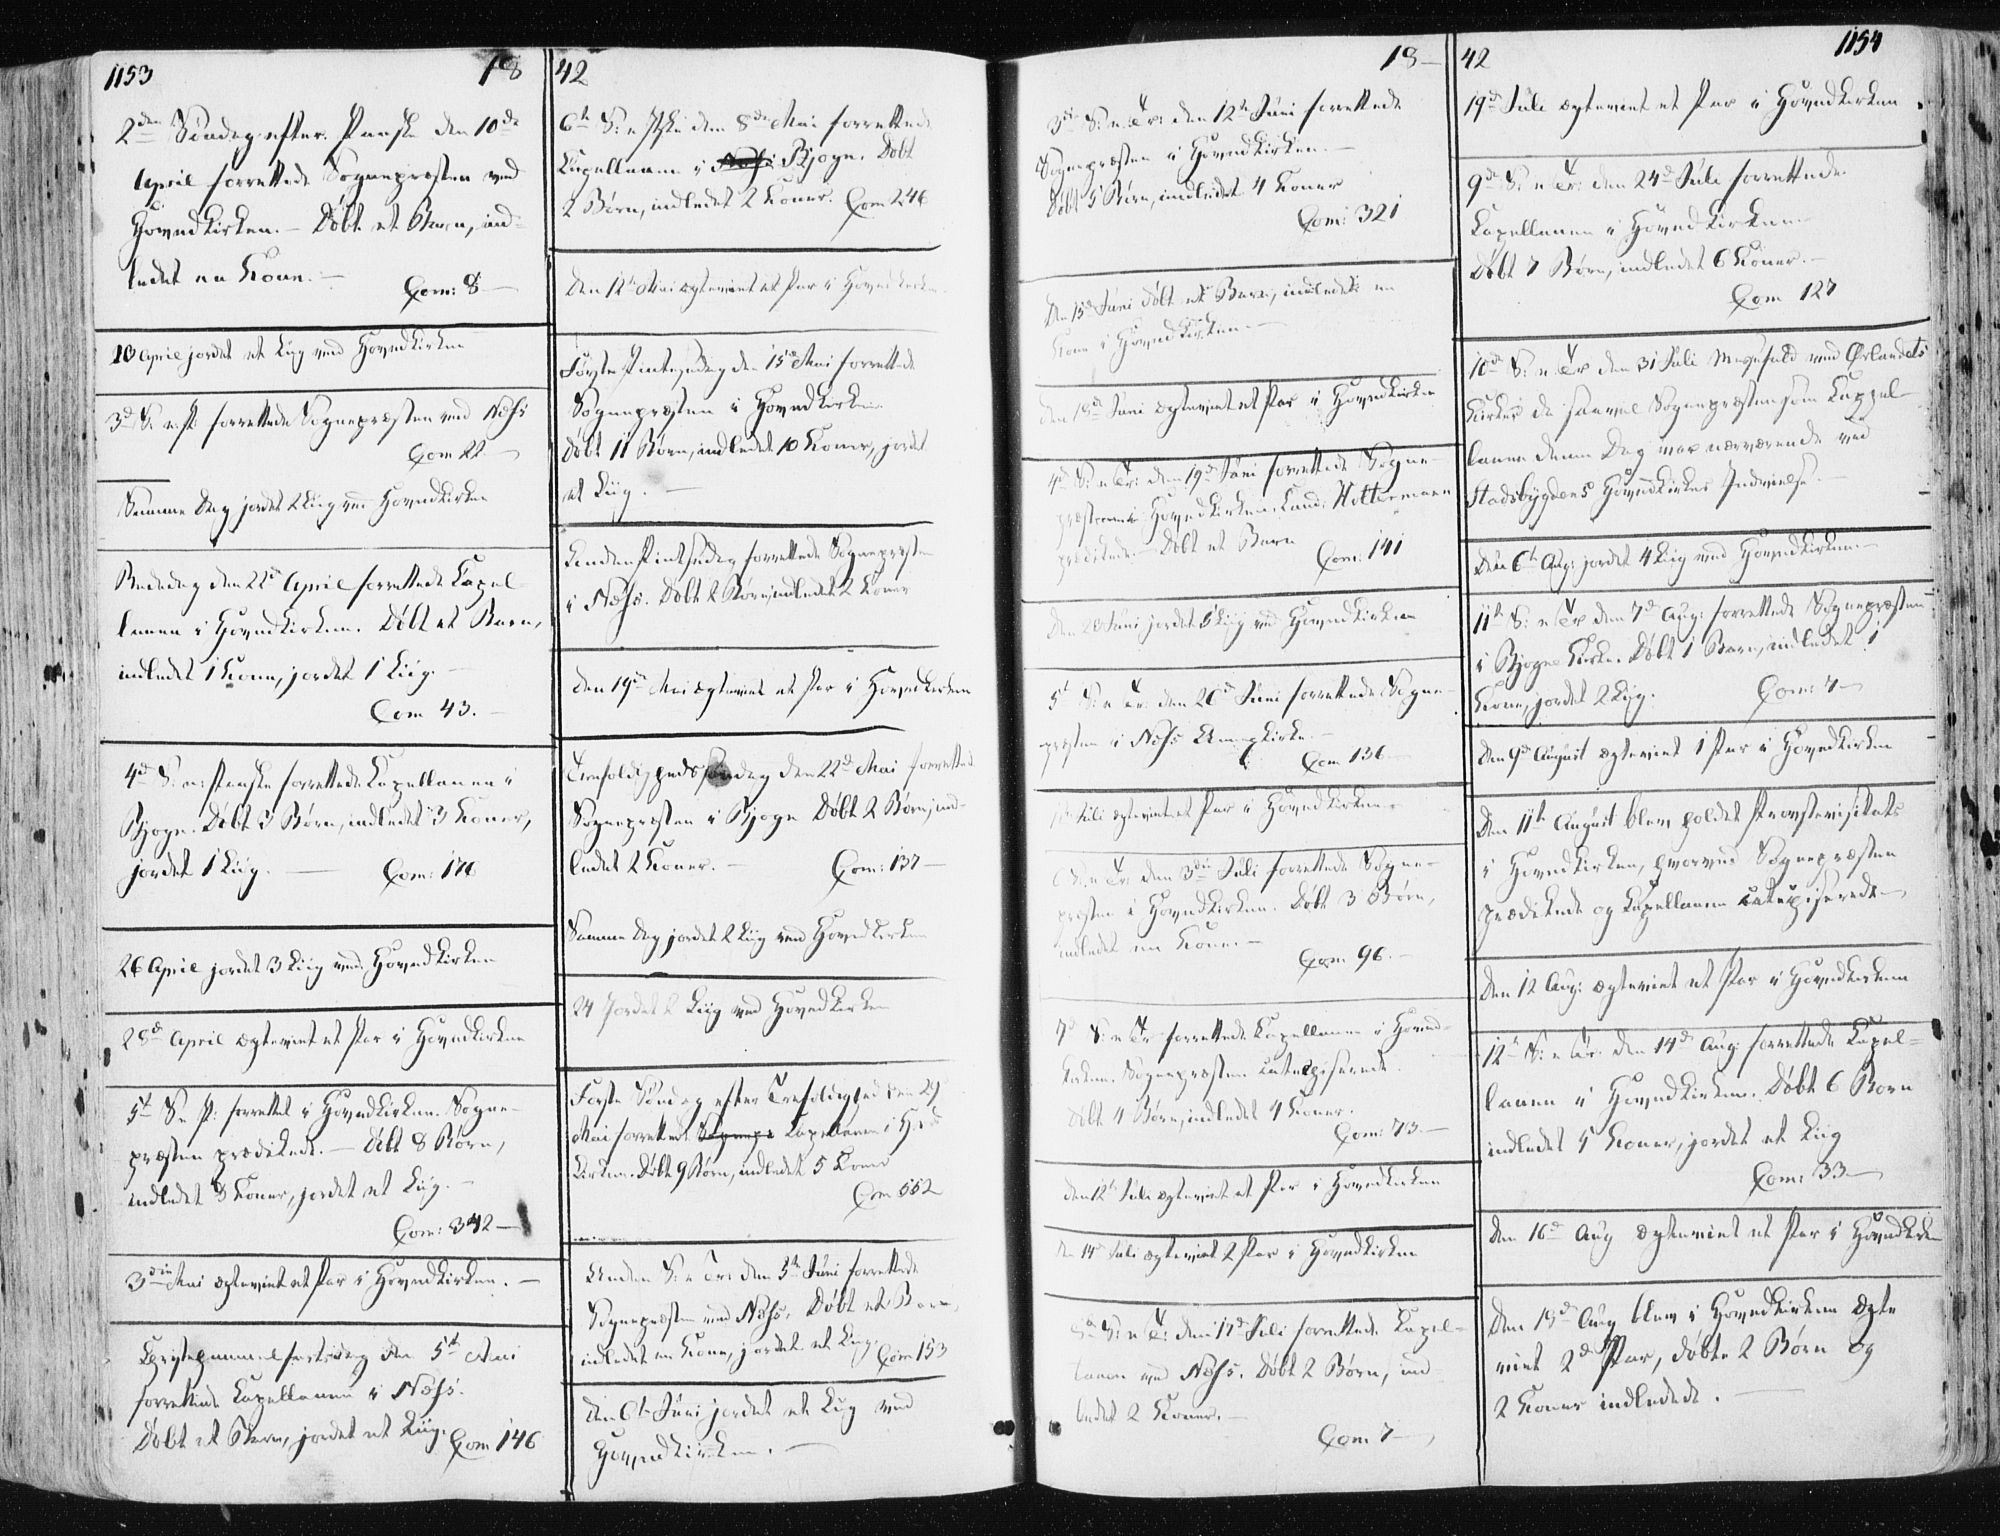 1153
18
42
2den Søndag efter Paaske den 10de
April forrettede Sognepræsten ved
Hovedkirken. – Døbt et Barn, ind-
ledet en Kone. –
Com: 8 –
10 April jordet et Liig ved Hovedkirken
3d S: e: P: forrettede Sognepræsten ved Næss
Com 22 –
Samme Dag jordet 2 Liig ved Hovedkirken
Bededag den 22d April forrettede Capel-
lanen i Hovedkirken. Døbt et Barn,
indledet 1 Kone, jordet 1 Liig. –
Com 43. –
4d S: e: Paaske forrettede Capellanen i
Bjogn. Døbt 3 Børn, indledet 3 Koner,
jordet 1 Liig. –
Com: 176
26 April jordet 3 Liig ved Hovedkirken
28d April ægteviet et Par i Hovedkirken
5t S: e P: forrettet i Hovedkirken. Sogne-
præsten prædikede. – Døbt 8 Børn,
indledet 8 Koner, jordet et Liig. –
Com: 342 –
3die Mai ægteviet et Par i Hovedkirken. –
Christihimmelfartsdag den 5t Mai
forrettede Capellanen i Næss.
Døbt et Barn, jordet et Liig. Com 146
6te S: e Paaske den 8de Mai forrettede
Capellanen i Bjogn. Døbt
2 Børn, indledet 2 Koner. Com 246
Den 12te Mai ægteviet et Par i Hovedkirken
Første Pintsedag den 15d Mai forrettede
Sognepræsten i Hovedkirken
Døbt 11 Børn, indledet 10 Koner, jordet
et Liig. –
Anden Pintsedag forrettede Sognepræsten
i Næss. Døbt 2 Børn, indledet 2 Koner
Den 19de Mai ægteviet et Par i Hovedkirken
Trefoldighedssøndag den 22d Mai forrettede
Sognepræsten i Bjogn Døbt 2 Børn, ind-
ledet 2 Koner. –
Com: 137 –
Samme Dag jordet 2 Liig ved Hovedkirken
24 Jordet 2 Liig ved Hovedkirken
Første Søndag efter Trefoldighed den 29
Mai forrettede Capellanen i Hoved
kirken. Døbt 9 Børn, indledet 5 Koner
Com 552
Anden S: e Tr: den 5te Juni forrettede
Sognepræsten ved Næss. Døbt et Barn,
indledet en Kone, jordet et Liig. Com 153
Den 6te Juni jordet et Liig ved
Hovedkirken. –
18 –
42
1154
3die S: e. Tr: den 12te Juni forrettede
Sognepræsten i Hovedkirken. –
Døbt 5 Børn, indledet 4 Koner
Com: 321
Den 15d Juni døbt et Barn, indledet en
Kone i Hovedkirken. –
Den 18d Juni ægteviet et Par i Hovedkirken
4d S: e Tr: den 19de Juni forrettede Sogne-
præsten i Hovedkirken. Cand: Wettermann
prædikede. Døbt et Barn
Com: 141
Den 20 Juni jordet 5 Liig ved Hovedkirken
5t S: e Tr: den 26d Juni forrettede Sogne-
præsten i Næss Annexkirke. –
Com 136 –
Juli ægteviet et Par i Hovedkirken.
6 S: e Tr: den 3die Juli forrettede Sogne-
præsten i Hovedkirken. Døbt 3 Børn,
indledet en Kone. –
Com 96. –
7d S: e Tr forrettede Capellanen i Hoved-
kirken. Sognepræsten catechiserede.
Døbt 4 Børn, indledet 4 Koner.
Com: 73 –
Den 12te Juli ægteviet et Par i Hovedkirken
Den 14d Juli ægteviet 2 Par i Hovedkirken
8de S: e T: den 17d Juli forrettede Capel-
lanen ved Næss. Døbt 2 Børn, ind
ledet 2 Koner. –
Com: 7 –
19d Juli ægteviet et Par i Hovedkirken.
9de S: e Tr: den 24d Juli forrettede
Capellanen i Hovedkirken
Døbt 7 Børn, indledet 6 Koner. –
Com 127
10de S: e Tr den 31 Juli Messefald ved Ørlandets
Kirker da saavel Sognepræsten som Cappel-
lanen denne Dag var nærværende ved
Stadsbygdens Hovedkirkes Indvielse. –
Den 6te Aug: jordet 4 Liig ved Hovedkirken. –
11te S: e Tr den 7d Aug: forrettede Sognepræsten
i Bjogns Kirke. Døbt 1 Barn, indledet 1
Kone, jordet 2 Liig.
Com: 4 –
Den 9d August ægteviet 1 Par i Hovedkirken
Den 11te August blev holdet Provstevisitats
i Hovedkirken, hvorved Sognepræsten
prædikede og Capellanen catechiserede –
Den 12 Aug: ægteviet et Par i Hovedkirken
12te S: e Tr: den 14d Aug: forrettede Capel-
lanen i Hovedkirken. Døbt 6 Børn
indledet 5 Koner, jordet et Liig
Com: 33 –
Den 16d Aug ægteviet et Par i Hovedkirken
Den 18d Aug blev i Hovedkirken ægte
viet 2d Par, døbte 2 Børn og
2 Koner indledede. –